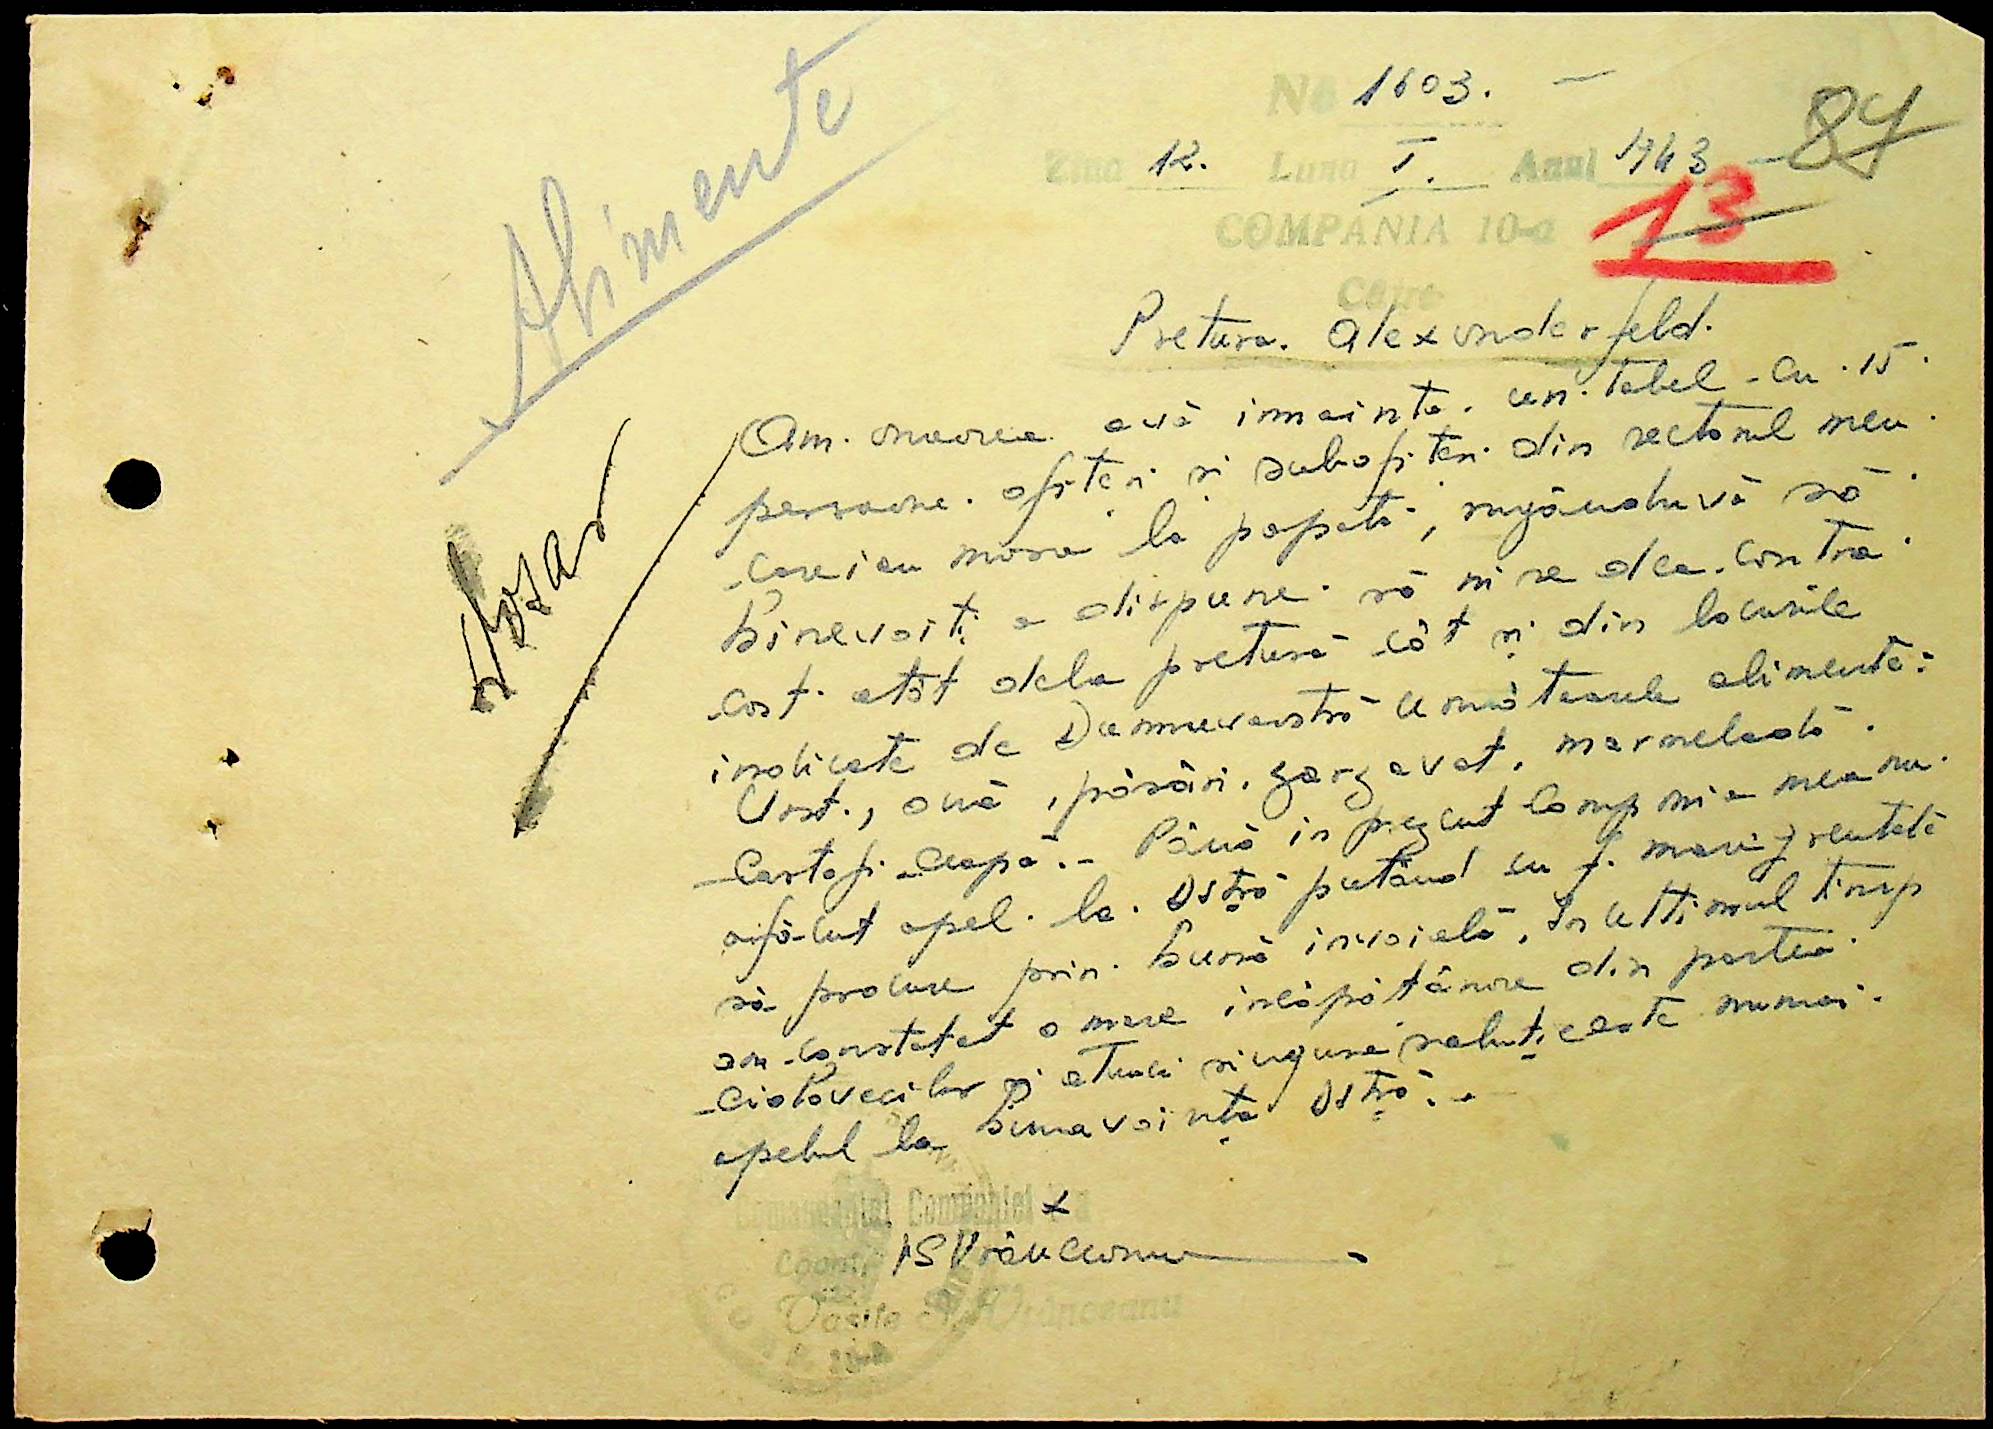 No 1603. —
Ziua 12. Luna I. Anul 1943
87
13
COMPANIA 10-a
Către
Pretura. Alexanderfeld.
Alimente
Dosar
Am. onoarea avă inainta. un. tabel - cu. 15.
persoane. ofiteri si subofiteri. din sectorul meu.
care iau masa la popotă, rugânduvă să
binevoiți a dispune. să ni se dea. contra.
cost. atât dela pretură cât și din locurile
indicate de Dumneavoastră următoarele alimente:
Unt., ouă, păsări. zarzavat. marmeladă.
Cartofi - ceapă. - Până in prezent Compania mea nu.
a făcut apel. la. Dstră putând cu f. mari greutăti
să procure prin. bună invoială. In ultimul timp
am constatat o mare incăpătânare din partea.
și atunci singura numai.
apelul la bunavoința Dstră. -
Comandantul Companiei
Vasile Vrânceanu